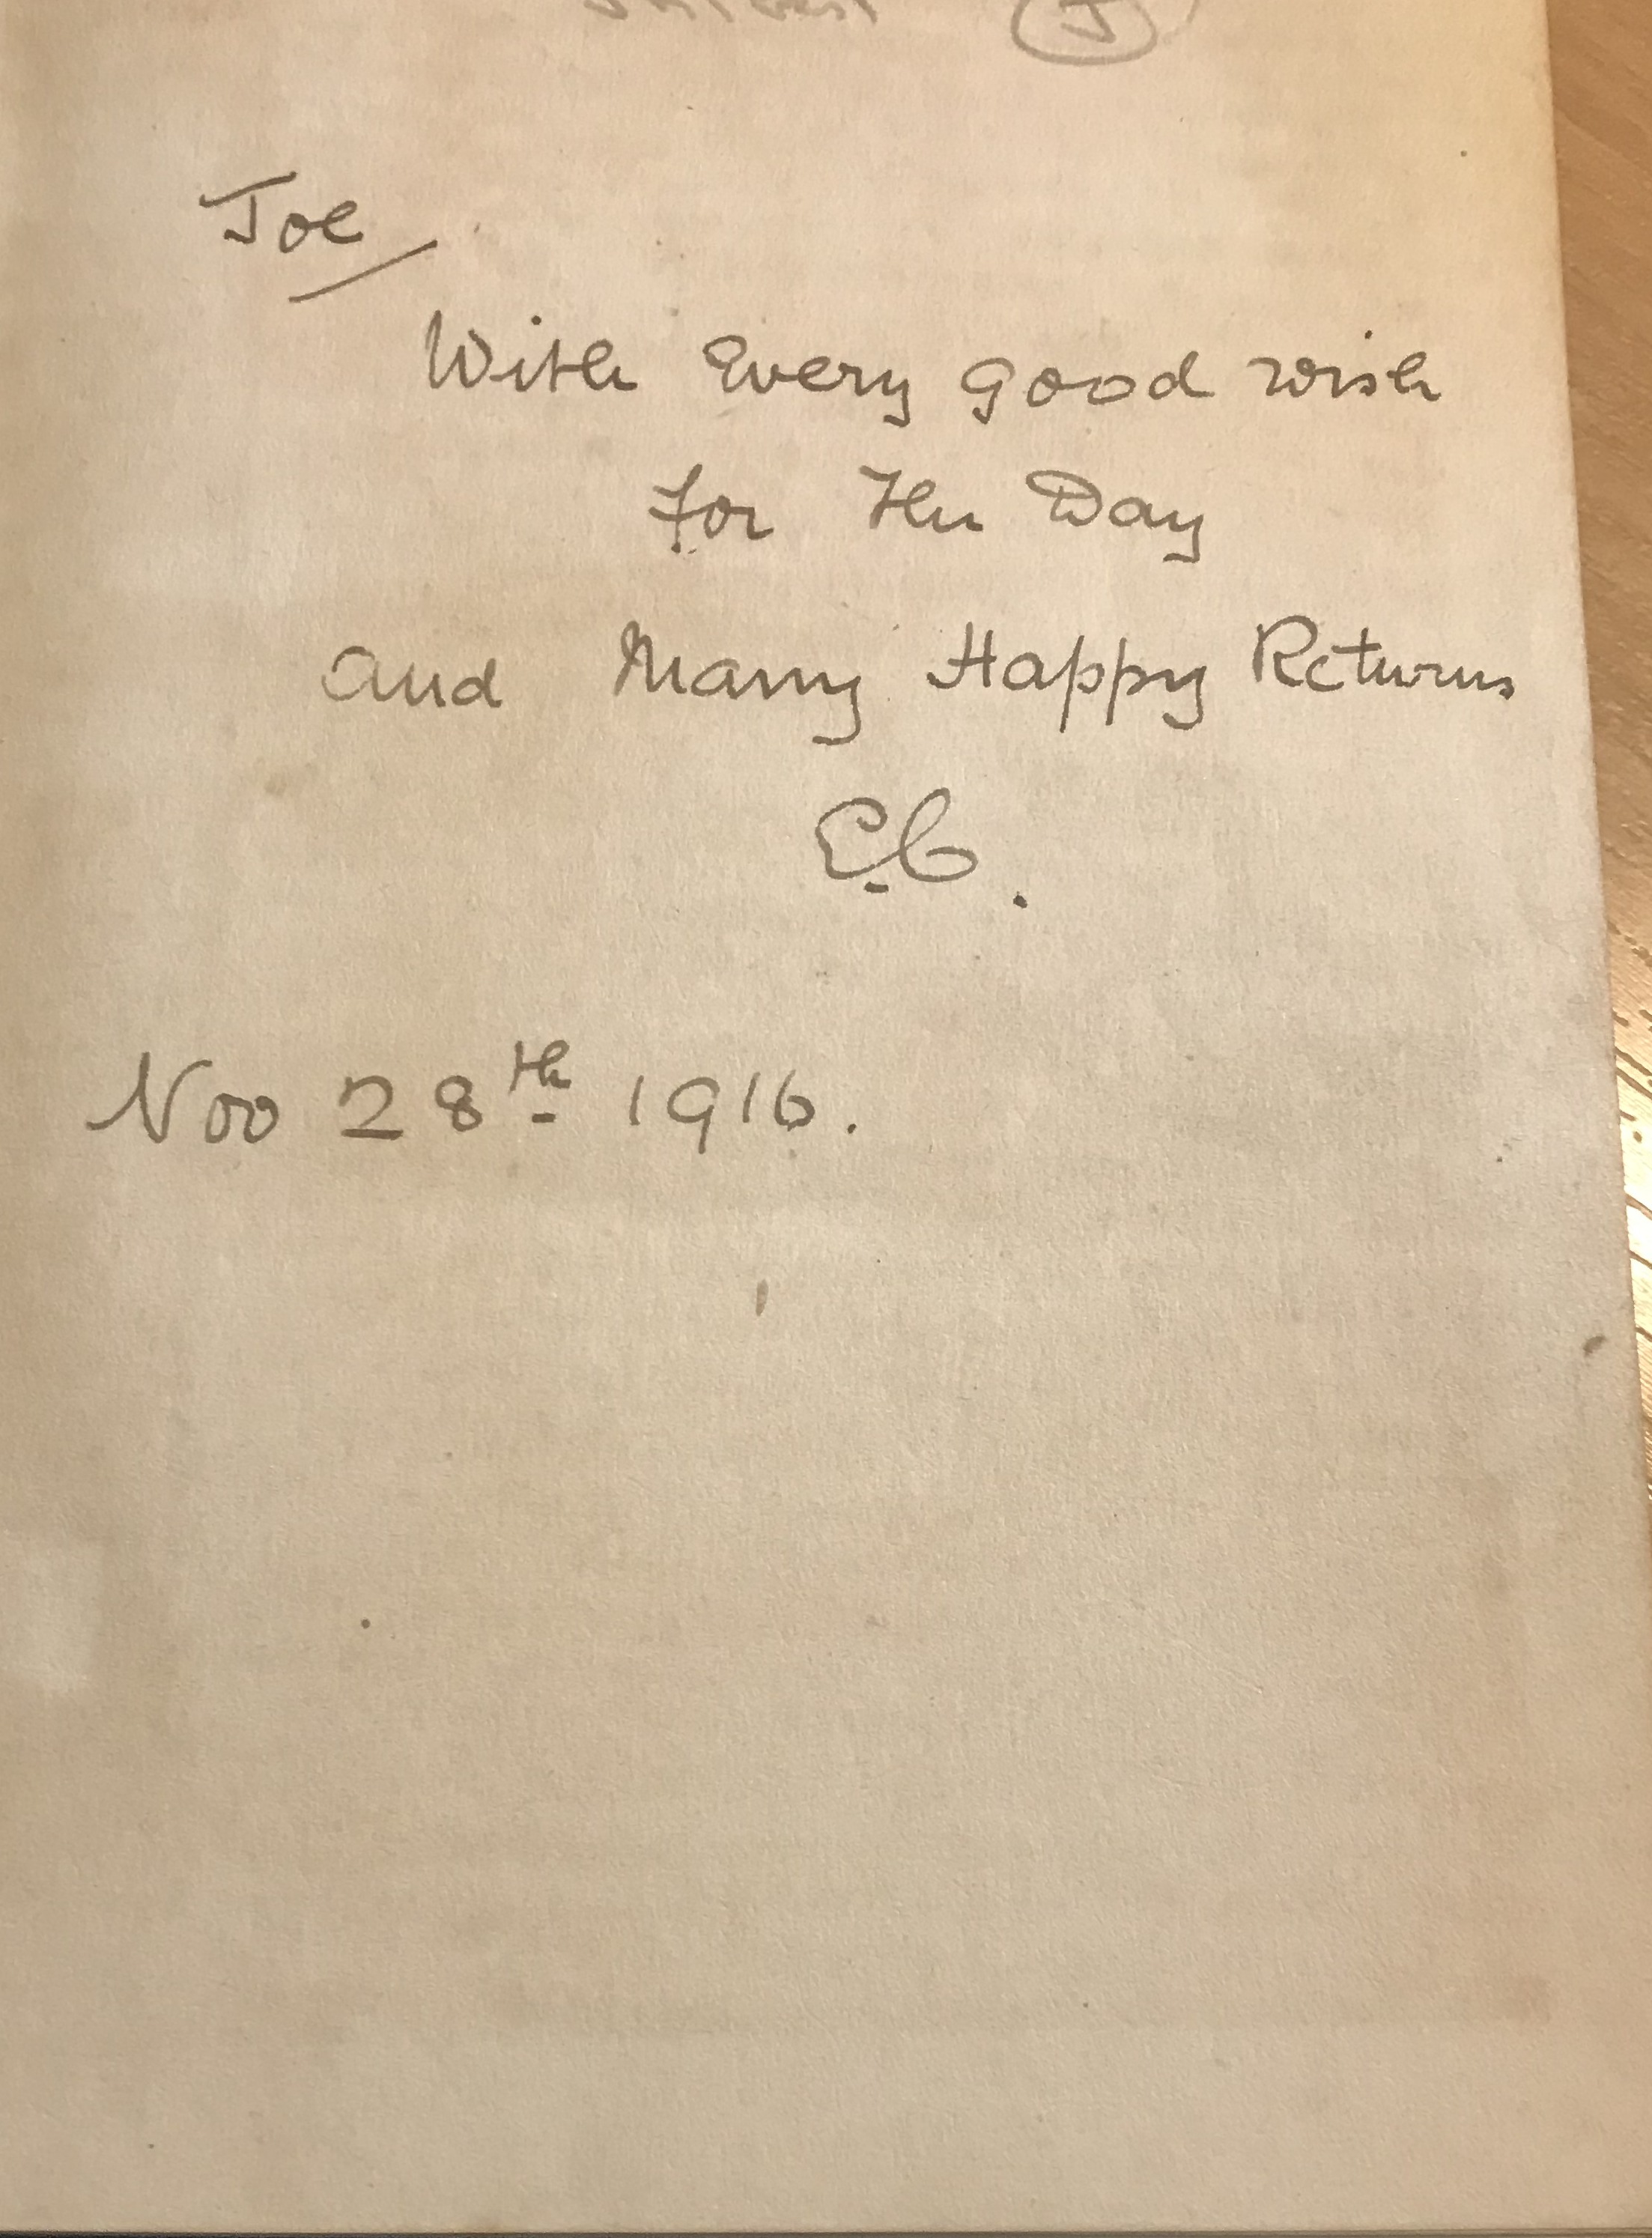 Joe
With Every good wish
for The Day
and Many Happy Returns
E.C.
Nov 28th 1916.